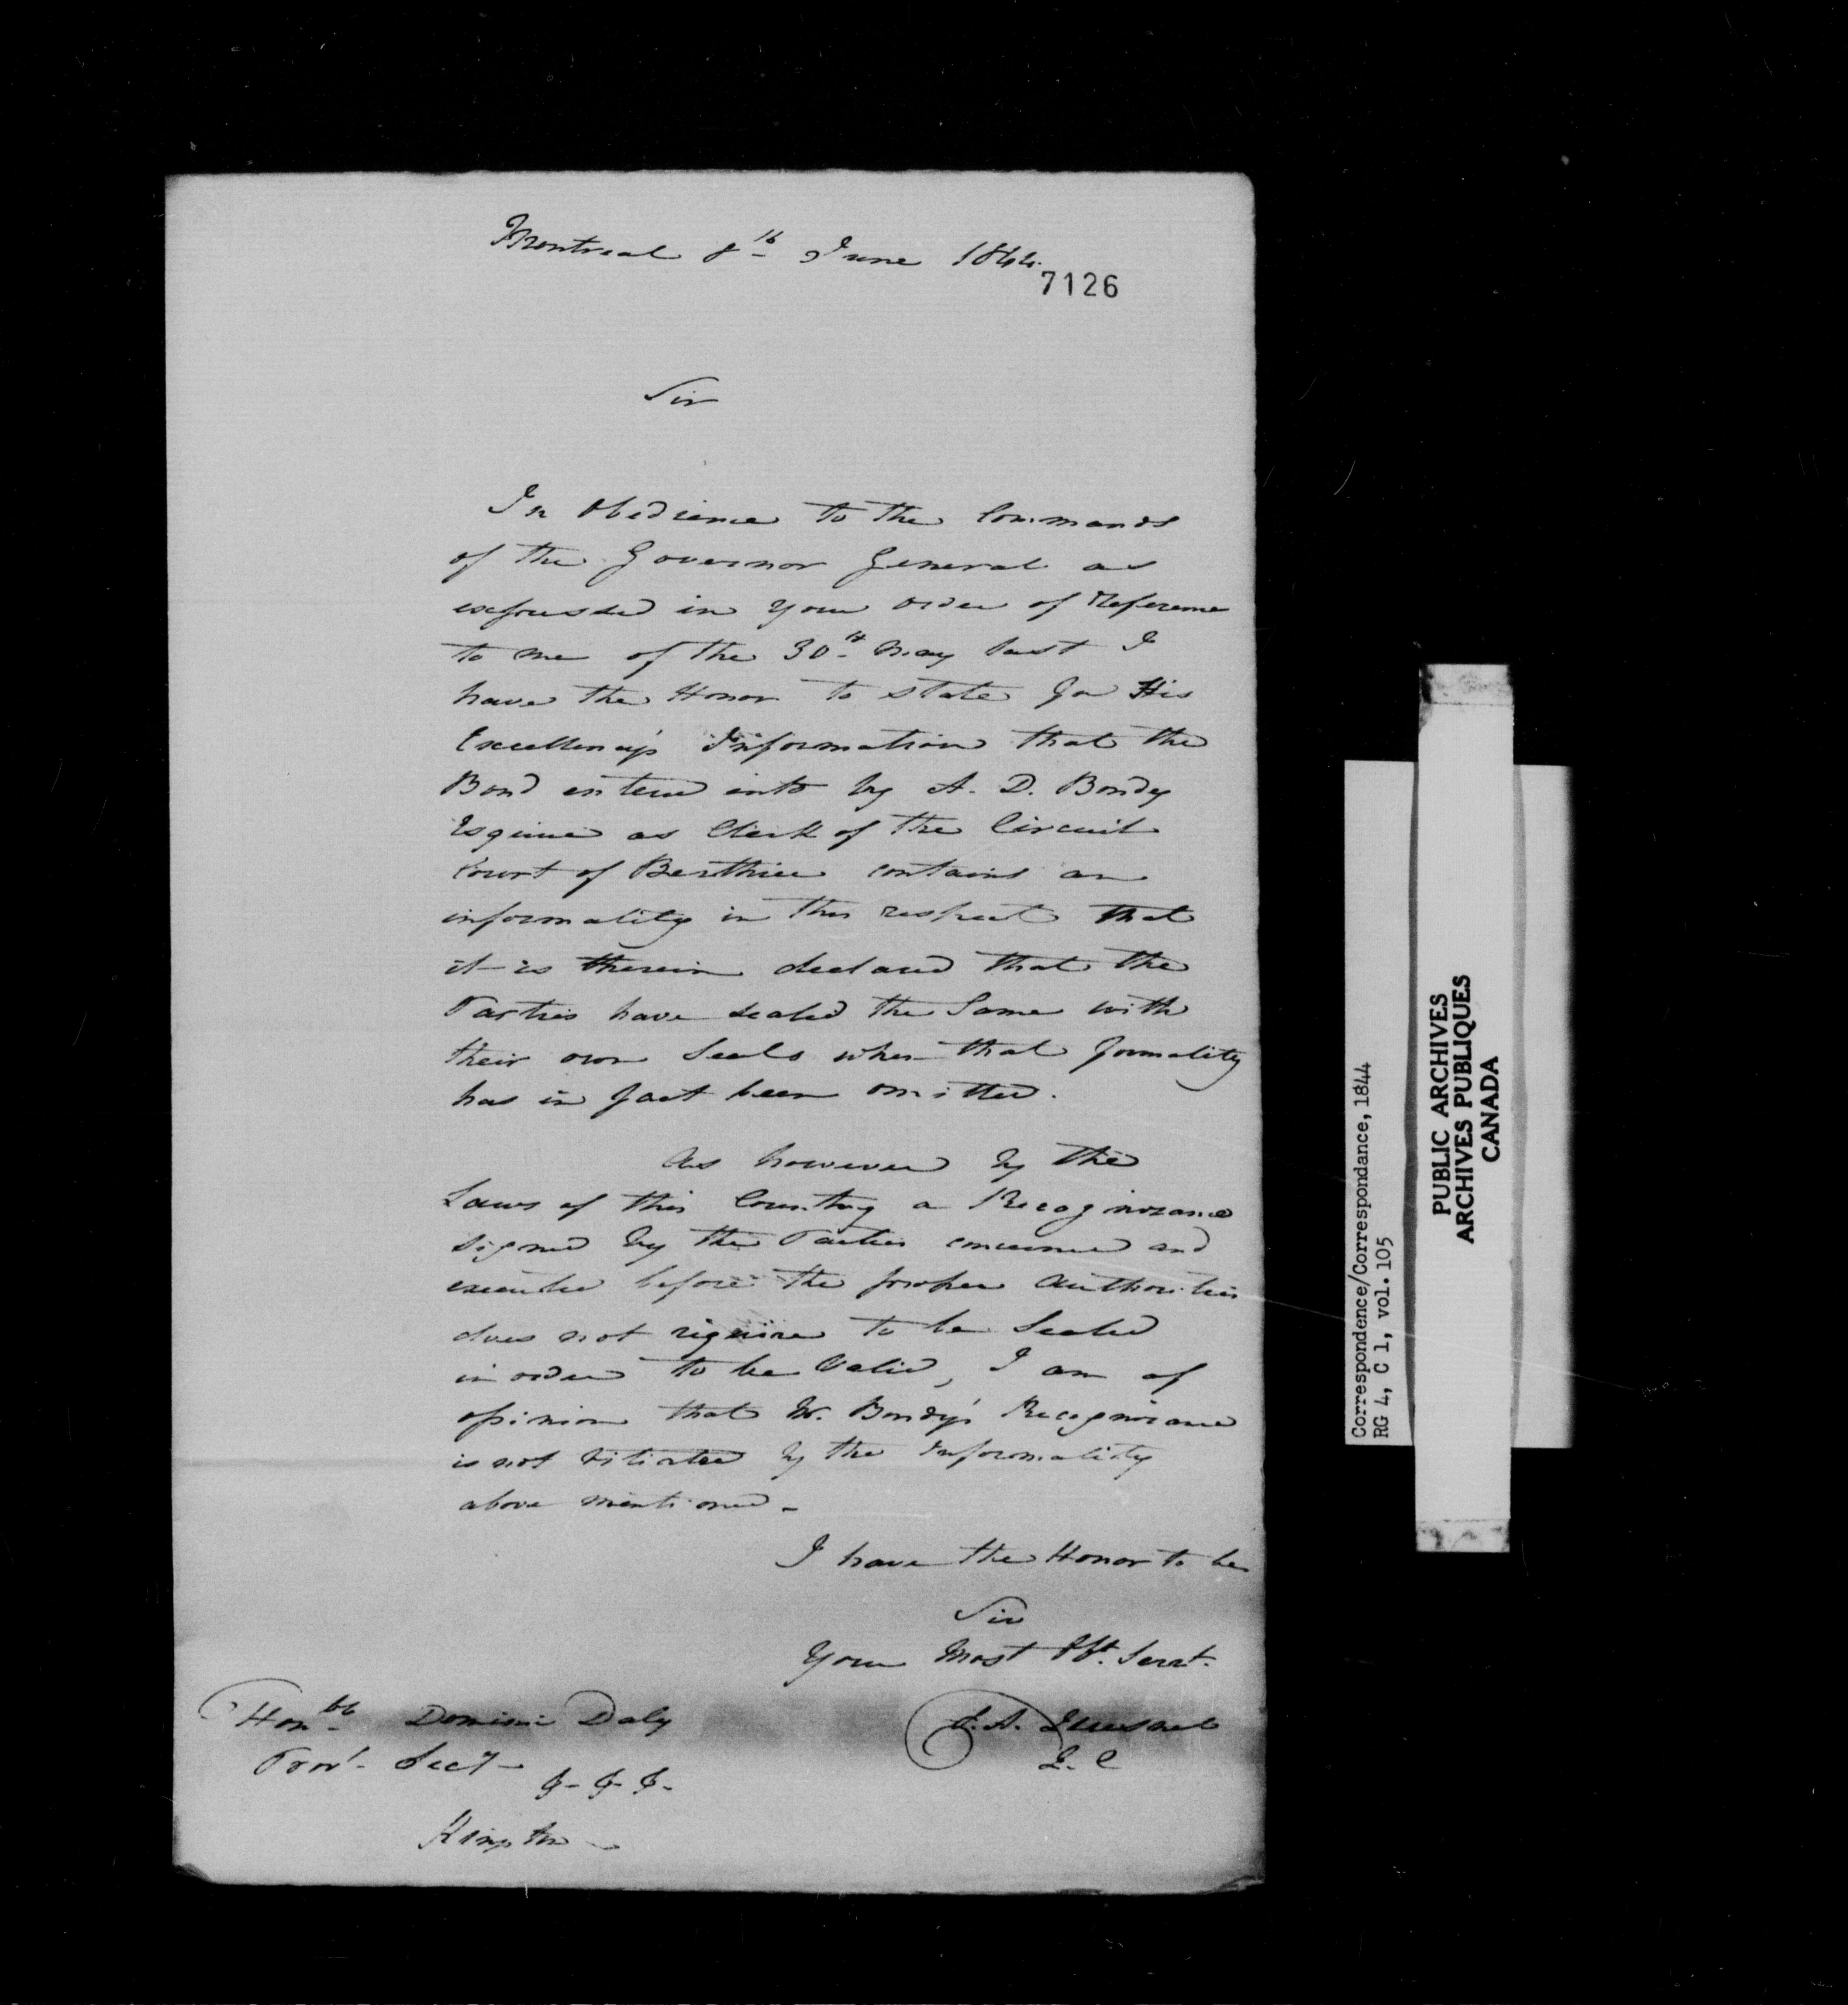 Montreal 8th June 1844.
7126
Sir
In Obedience to the Commands
of the Governor General as
expressed in your order of Reference
to me of the 30th May last I
have the Honor to state for His
Excellency's Information that the
Bond entered into by A. D. Bondy
Esquire as Clerk of the Circuit
Court of Berthier contains an
informality in this respect that
it is therein declared that the
Parties have sealed the Same with
their own Seals when that formality
has in fact been omitted.
As however by the
Laws of this Country a Recognizance
signed by the Parties concerned and
executed before the proper Authorities
does not require to be Sealed
in order to be Valid, I am of
opinion that Mr. Bondy's Recognizance
is not vitiated by the Informality
above mentioned -
I have the Honor to be
Sir
Your Most Obt. Servt.
Honble Dominic Daly
Provl. Secy
&. &. &.
Kingston
J. A. Quesnel
Q. C
Correspondence/Correspondance, 1844
RG 4, C 1, vol. 105
PUBLIC ARCHIVES
ARCHIVES PUBLIQUES
CANADA